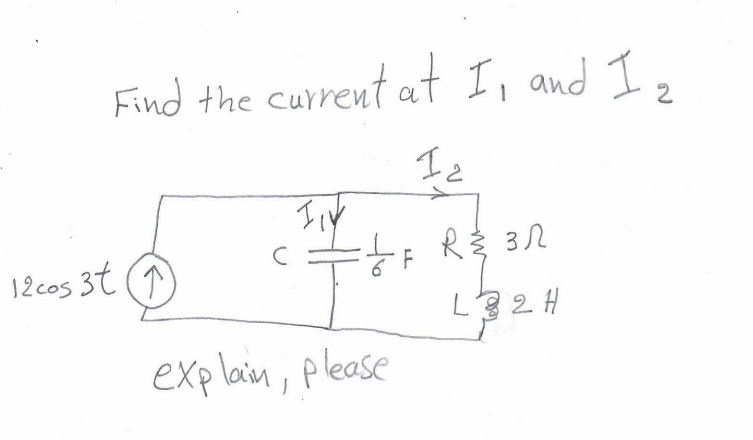 Find the current at I₁ and I₂
I₂
I₁
C 1/6 F R 3Ω
12cos 3t
L 2 H
explain, please